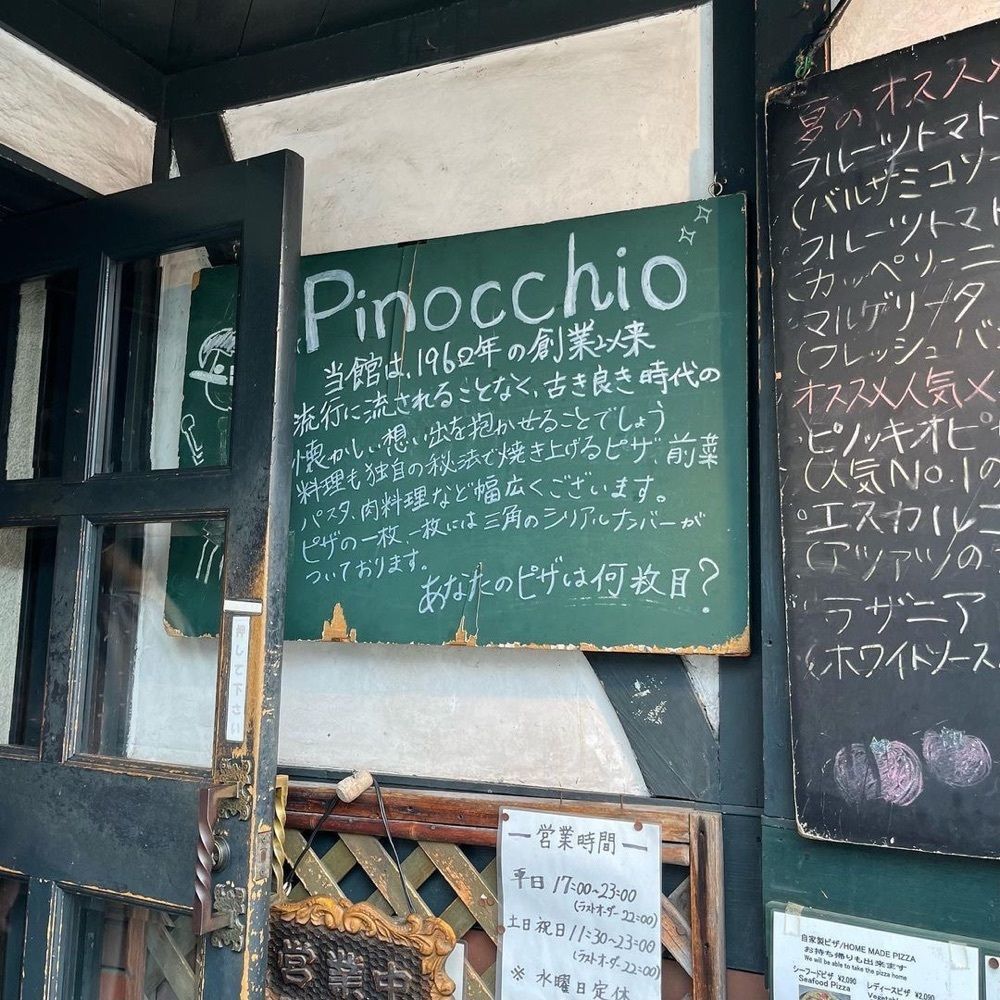 Pinocchio
当館は、1962年の創業以来
流行に流されることなく、古き良き時代の
懐かしい想い出を抱かせることでしょう
料理も独自の秘法で焼き上げるピザ、前菜
パスタ、肉料理など幅広くございます。
ピザの一枚一枚には三角のシリアルナンバーが
ついております。
あなたのピザは何枚目?
夏のオススメ
フルーツトマト
(バルサミコソー
フルーツトマト
カッペリーニ
マルゲリータ
(フレッシュバ
オススメ人気メ
ピノッキオピ
(人気No.1の
エスカルゴ
(アツアツの
ラザニア
(ホワイトソース
押して下さい
営業時間
平日 17:00~23:00
(ラストオーダー22:00)
土日祝日 11:30~23:00
(ラストオーダー22:00)
※ 水曜日定休
営業中
自家製ピザ/HOME MADE PIZZA
お持ち帰りも出来ます
We will be able to take the pizza home
シーフードピザ ¥2,090
Seafood Pizza
レディースピザ ¥2,090